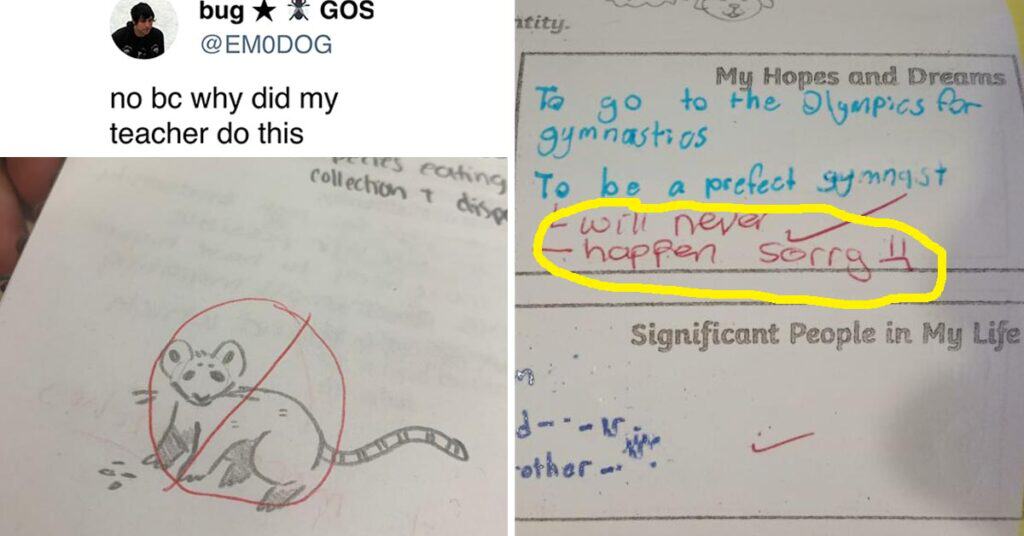 bug ★ 🕷 GOS
@EM0DOG
no bc why did my
teacher do this
eating
collection + disp
ntity.
My Hopes and Dreams
To go to the Olympics for
gymnastics
To be a prefect gymnast
- will never
- happen sorry
Significant People in My Life
n
d
other